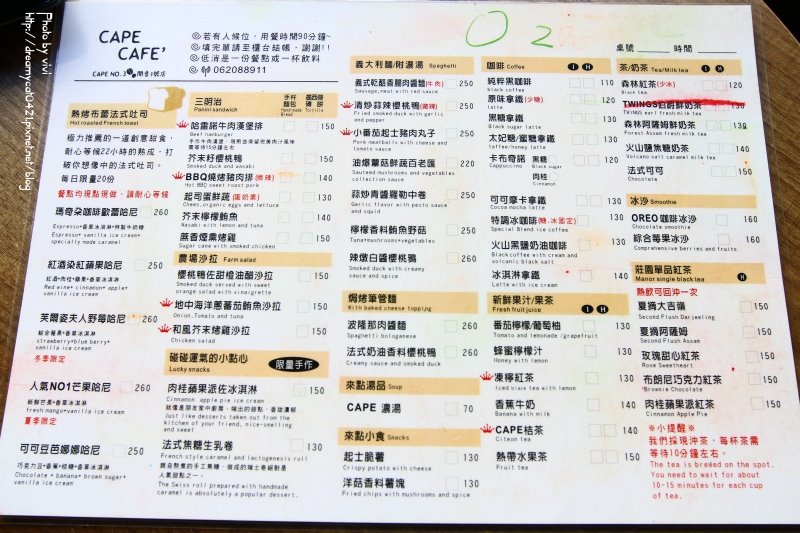 Photo by vivi
http://dreamycat0421.pixnet.net/blog
CAPE
CAFE'
CAPE NO.3 開普3號店
◎若有人候位，用餐時間90分鐘~
◎填完單請至櫃台結帳，謝謝!!
◎低消是一份餐點或一杯飲料
062088911
O2
桌號
時間
熱烤布蕾法式吐司
Hot roasted French toast
極力推薦的一道創意甜食，
耐心等候22小時的熟成，打
破你想像中的法式吐司。
每日限量20份
餐點均現點現做，請耐心等候
瑪奇朵咖啡歐蕾哈尼 260
Espresso+香草冰淇淋+特製牛奶糖
Espresso+ vanilla ice cream+
specially made caramel
紅酒染紅蘋果哈尼 250
紅酒+肉桂+蘋果+香草冰淇淋
Red wine+ cinnamon+ apple+
vanilla ice cream
芙爾姿夫人野莓哈尼 260
綜合莓果+香草冰淇淋
strawberry+blueberry+
vanilla ice cream
冬季限定
人氣NO1芒果哈尼 260
新鮮芒果+香草冰淇淋
fresh mango+vanilla ice cream
夏季限定
可可豆芭娜娜哈尼 250
巧克力豆+香蕉+棕糖+香草冰淇淋
Chocolate + banana+ brown sugar+
vanilla ice cream
三明治
Panini sandwich
手杯麵包
Handmade Bread
墨西哥餅
Tortilla
哈雷諾牛肉漢堡排 150
Beef hamburger
芥末籽櫻桃鴨 150
Smoked duck and wasabi
BBQ燒烤豬肉排(微辣) 150
Hot BBQ sweet roast pork
起司蛋鮮蔬(蛋奶素) 150
Cheese, organic eggs and lettuce
芥末檸檬鮪魚 150
Wasabi with lemon and tuna
蔗香煙熏烤雞 150
Sugar cane with smoked chicken
農場沙拉 Farm salad
櫻桃鴨佐甜橙油醋沙拉 150
Smoked duck served with sweet
orange salad with vinaigrette
地中海洋蔥蕃茄鮪魚沙拉 150
Onion.Tomato and tuna
和風芥末烤雞沙拉 150
Chicken salad
碰碰運氣的小點心
Lucky snacks
限量手作
肉桂蘋果派佐冰淇淋 150
Cinnamon apple pie ice cream
就像是朋友家中廚房，端出的甜點，香甜濃郁
Just like desserts taken out from the
kitchen of your friend, nice-smelling
and sweet
法式焦糖生乳卷 130
French style caramel and lactogenesis roll
The Swiss roll prepared with handmade
caramel is absolutely a popular dessert.
義大利麵/附濃湯 Spaghetti
義式乾酪香腸肉醬麵(牛肉) 250
Sausage,meat with red sauce
清炒蒜辣櫻桃鴨(微辣) 250
Fried smoked duck with garlic
and pepper
小番茄起士豬肉丸子 250
Pork meatball with cheese and
tomato sauce
油爆蕈菇鮮蔬百老匯 220
Sauteed mushrooms and vegetables
collection sauce
蒜炒青醬羅勒中卷 250
Garlic flavor with pesto sauce
and squid
檸檬香料鮪魚野菇 250
Tuna+mushrooms+vegetables
辣嫩白醬櫻桃鴨 250
Smoked duck with creamy
sauce and spicy
焗烤筆管麵
With baked cheese topping
波隆那肉醬麵 250
Spaghetti bolognanese
法式奶油香料櫻桃鴨 250
Smoked duck with creamy sauce
來點湯品 Soup
CAPE 濃湯 70
來點小食 Snacks
起士脆薯 130
Crispy potato with cheese
洋菇香料薯塊 130
Fried chips with mushrooms and spice
咖啡 Coffee I H
純粹黑咖啡 110
black coffee
原味拿鐵(少糖) 140
latte
黑糖拿鐵 140
Black sugar latte
太妃糖/蜜糖拿鐵 140
taffee/honey latte
卡布奇諾 黑糖 140
Cappuccino black
肉桂
Cinnamon
可可摩卡拿鐵 140
Cocoa mocha latte
特調冰咖啡(糖.冰固定) 140
Special Blend ice coffee
火山黑糖奶油咖啡 150
Black coffee with cream and
volcanic black salt
冰淇淋拿鐵 140
Latte with ice cream
新鮮果汁/果茶 I H
Fresh fruit juice
蕃茄檸檬/葡萄柚 130
Tomato and lemonade /grapefruit
蜂蜜檸檬汁 130
Honey with lemon
凍檸紅茶 130
Iced black tea with lemon
香蕉牛奶 140
Banana with milk
CAPE桔茶 140
Citeon tea
熱帶水果茶 150
Fruit tea
茶/奶茶 Tea/Milk tea I H
森林紅茶(少冰) 120
Black tea
TWINGS伯爵鮮奶茶 130
TWINGS earl fresh milk tea
森林阿薩姆鮮奶茶 130
Forest Assam fresh milk tea
火山鹽焦糖奶茶 150
Volcano salt caramel milk tea
法式可可 150
Chocolate
冰沙 Smoothie
OREO咖啡冰沙 160
Chocolate smoothie
綜合莓果冰沙 160
Comprehensive berries and fruits
莊園單品紅茶 H
Manor single black tea
熱飲可回沖一次
夏摘大吉嶺 150
Second Flush Darjeeling
夏摘阿薩姆 150
Second Flush Assam
玫瑰甜心紅茶 150
Rose Sweetheart
布朗尼巧克力紅茶 150
Brownie Chocolate
肉桂蘋果派紅茶 150
Cinnamon Apple Pie
※小提醒※
我們採現沖茶，每杯茶需
等待10分鐘左右。
The tea is brewed on the spot.
You need to wait for about
10-15 minutes for each cup
of tea.